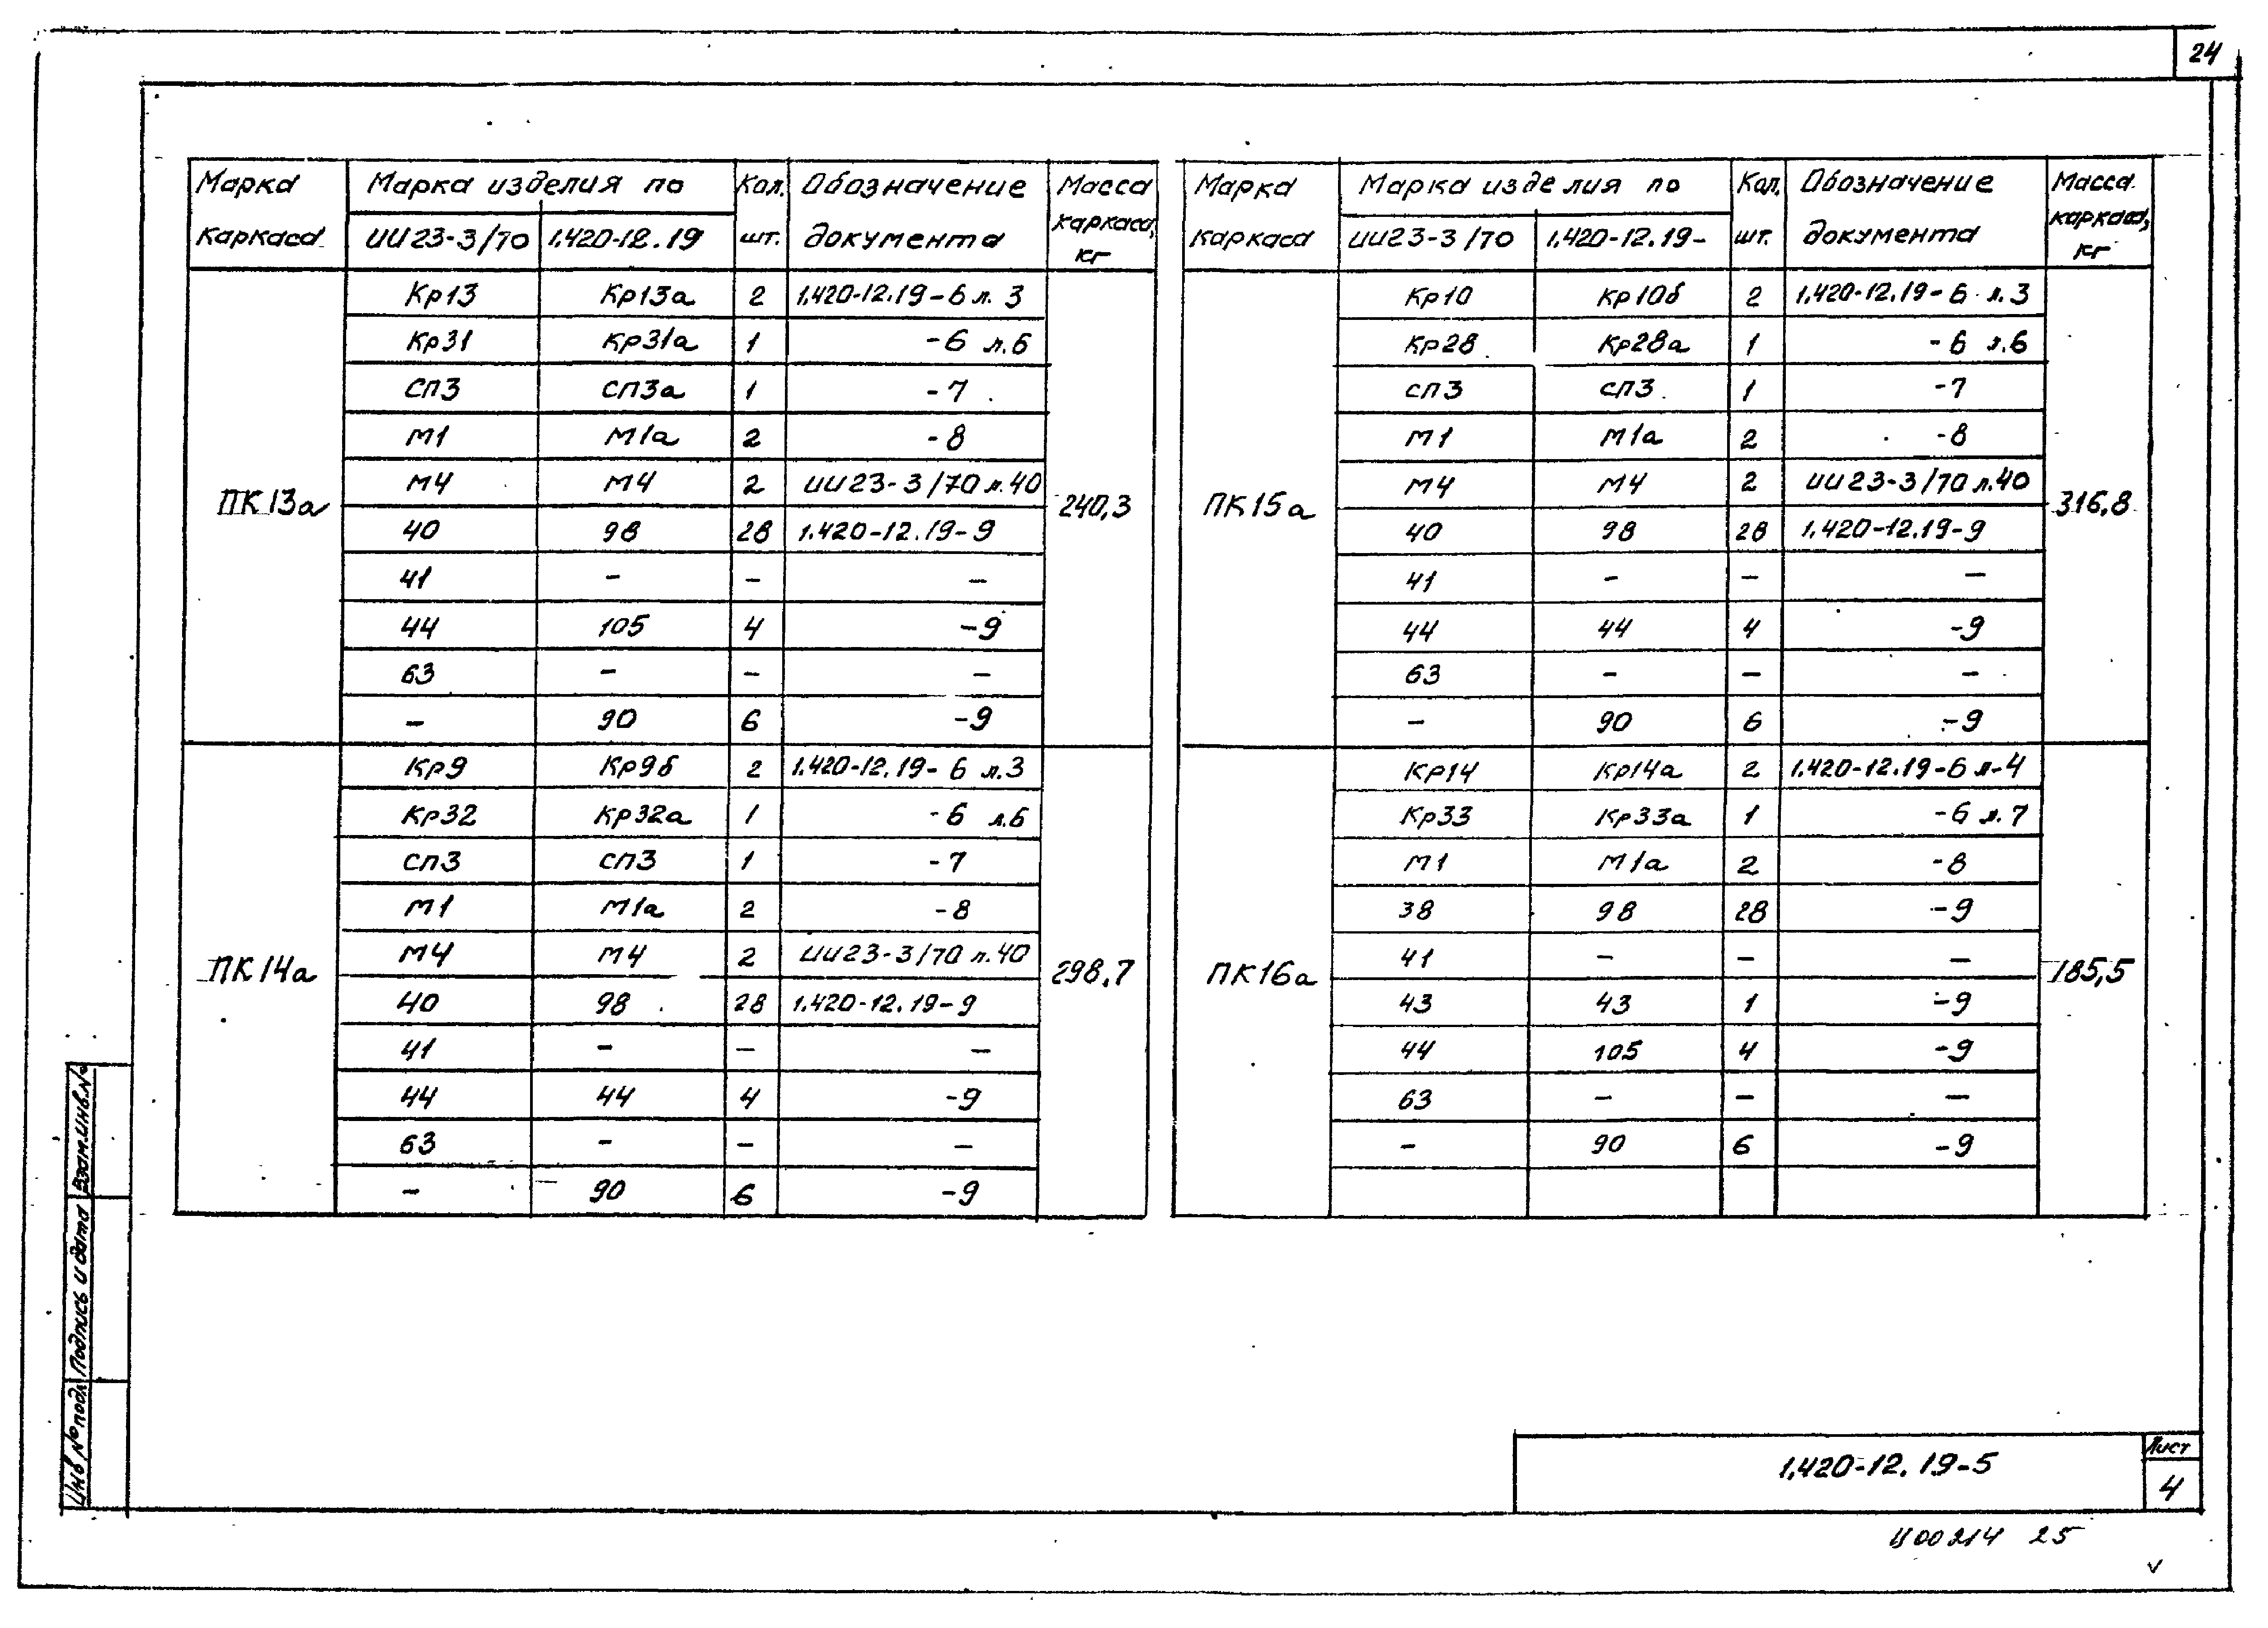 24
Марка каркаса | Марка изделия по | Кол. шт. | Обозначение документа | Масса каркаса, кг
ИИ23-3/70 | 1.420-12.19
ПК13а | 240,3
Кр13 | Кр13а | 2 | 1.420-12.19-6 л. 3
Кр31 | Кр31а | 1 | -6 л.6
СП3 | СП3а | 1 | -7
М1 | М1а | 2 | -8
М4 | М4 | 2 | ИИ23-3/70 л.40
40 | 98 | 28 | 1.420-12.19-9
41 | - | - | -
44 | 105 | 4 | -9
63 | - | - | -
- | 90 | 6 | -9
ПК14а | 298,7
Кр9 | Кр9б | 2 | 1.420-12.19-6 л.3
Кр32 | Кр32а | 1 | -6 л.6
СП3 | СП3 | 1 | -7
М1 | М1а | 2 | -8
М4 | М4 | 2 | ИИ23-3/70 л.40
40 | 98 | 28 | 1.420-12.19-9
41 | - | - | -
44 | 44 | 4 | -9
63 | - | - | -
- | 90 | 6 | -9
Марка каркаса | Марка изделия по | Кол. шт. | Обозначение документа | Масса каркаса, кг
ИИ23-3/70 | 1.420-12.19-
ПК15а | 316,8
Кр10 | Кр10б | 2 | 1.420-12.19-6 л.3
Кр28 | Кр28а | 1 | -6 л.6
СП3 | СП3 | 1 | -7
М1 | М1а | 2 | -8
М4 | М4 | 2 | ИИ23-3/70 л.40
40 | 98 | 28 | 1.420-12.19-9
41 | - | - | -
44 | 44 | 4 | -9
63 | - | - | -
- | 90 | 6 | -9
ПК16а | 185,5
Кр14 | Кр14а | 2 | 1.420-12.19-6 л.4
Кр33 | Кр33а | 1 | -6 л.7
М1 | М1а | 2 | -8
38 | 98 | 28 | -9
41 | - | - | -
43 | 43 | 1 | -9
44 | 105 | 4 | -9
63 | - | - | -
- | 90 | 6 | -9
Инв.№ подл. Подпись и дата Взам.инв.№
1.420-12.19-5
Лист
4
Ц00214 25